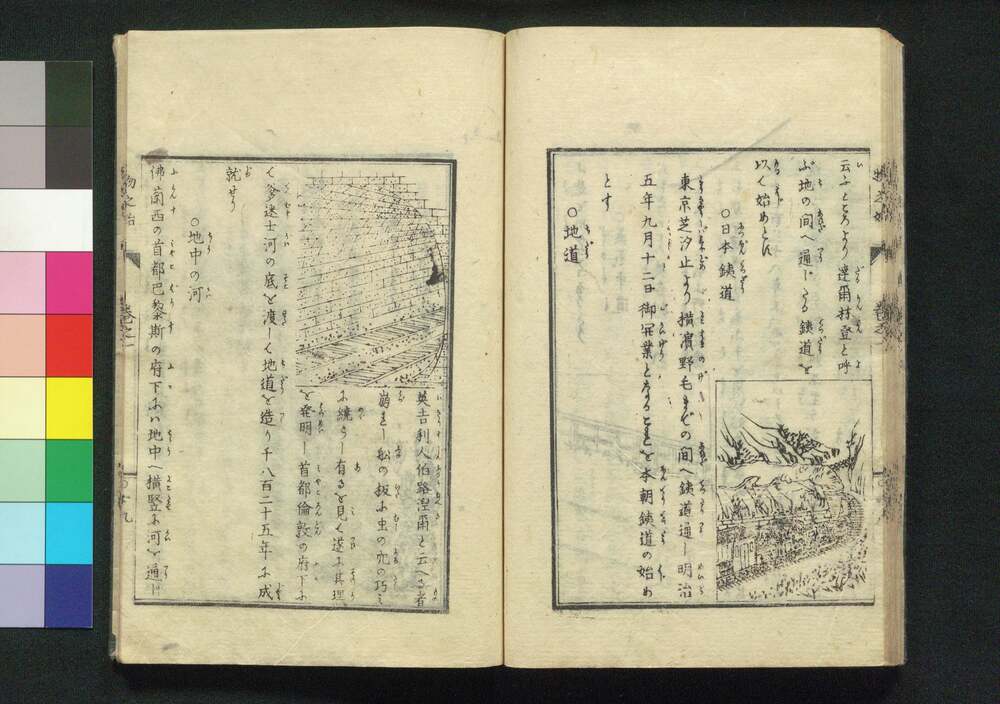 云ふところより達爾村登と呼
ぶ地の間へ通じたる鉄道を
以て始めとす
○日本鉄道
東京芝汐止より横濱野毛までの間へ鉄道通し明治
五年九月十二日御開業となるこれを本朝鉄道の始め
とす
○地道
英吉利人伯路涅爾と云へる者
崩れし船の板に虫の穴の巧み
に繞らし有るを見て遂に其理
を発明し首都倫敦の府下に
て多迷士河の底を渡して地道を造り千八百二十五年に成
就せり
○地中の河
佛蘭西の首都巴黎斯の府下には地中へ横竪に河を通じ